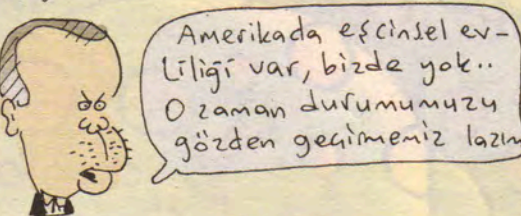 Amerikada eşcinsel ev-
liliği var, bizde yok..
O zaman durumumuzu
gözden geçirmemiz lazım